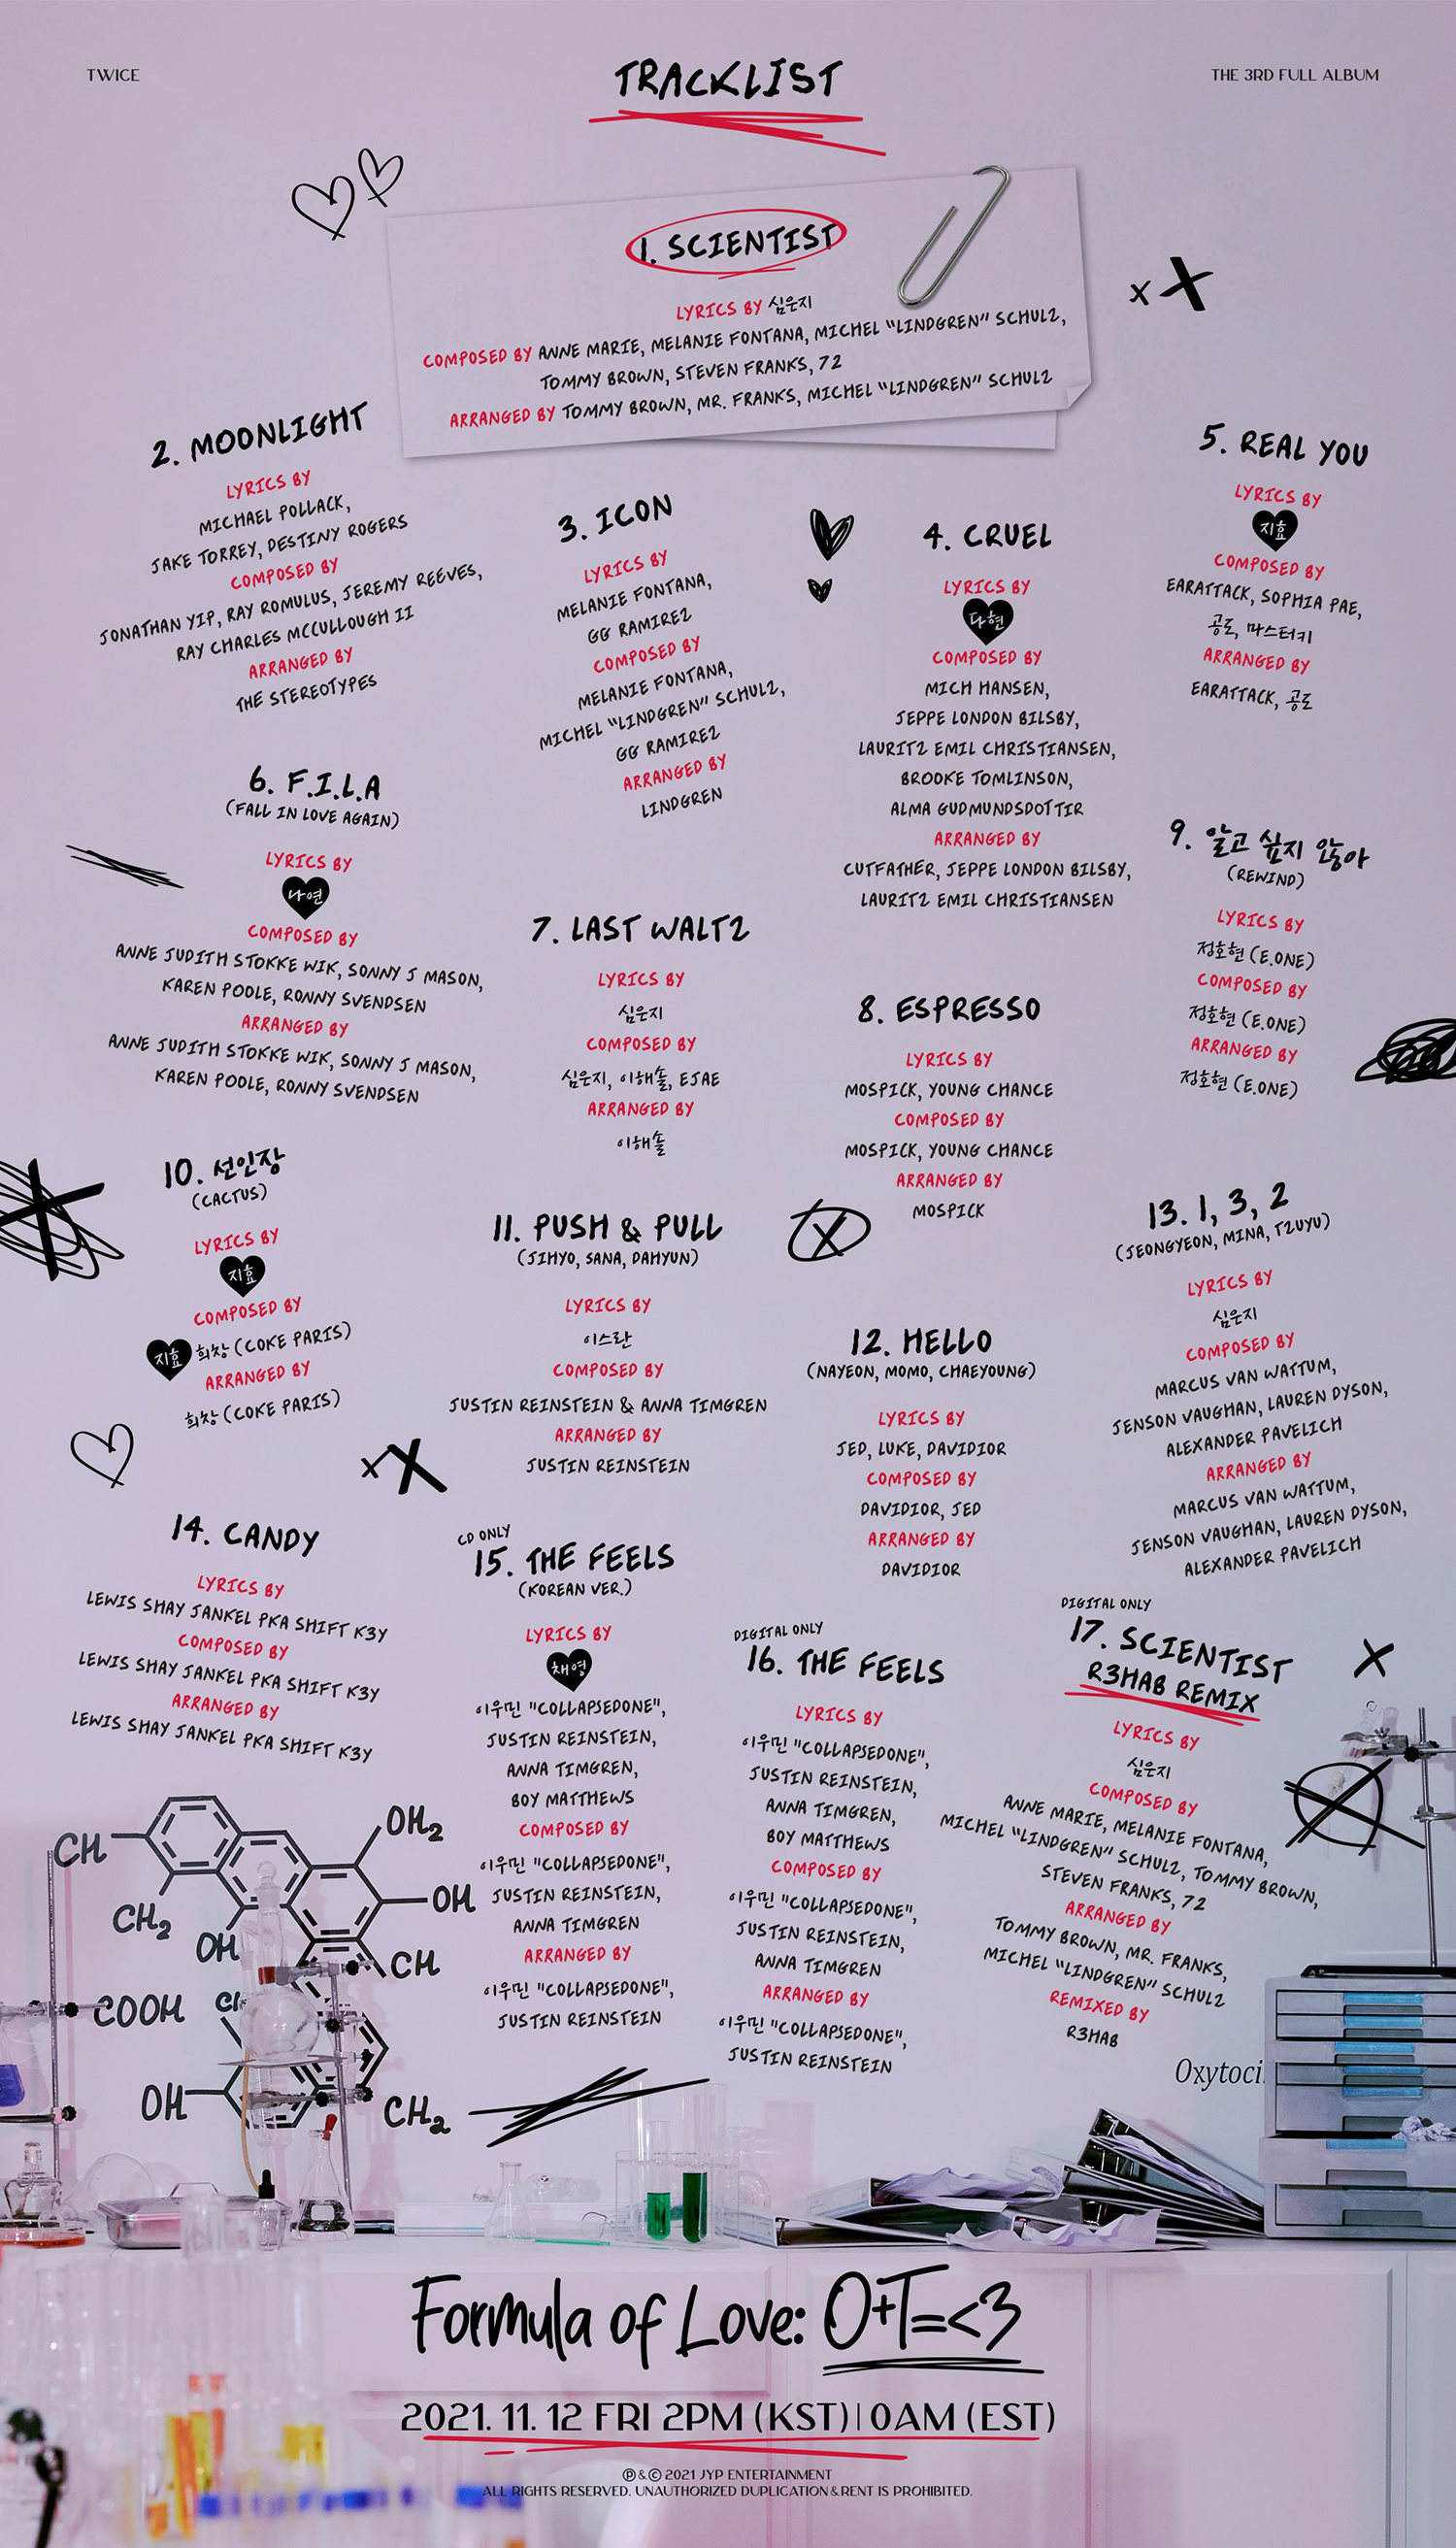 TWICE
TRACKLIST
THE 3RD FULL ALBUM
1. SCIENTIST
LYRICS BY 심은지
COMPOSED BY ANNE MARIE, MELANIE FONTANA, MICHEL "LINDGREN" SCHULZ,
TOMMY BROWN, STEVEN FRANKS, 72
ARRANGED BY TOMMY BROWN, MR. FRANKS, MICHEL "LINDGREN" SCHULZ
2. MOONLIGHT
LYRICS BY
MICHAEL POLLACK,
JAKE TORREY, DESTINY ROGERS
COMPOSED BY
JONATHAN YIP, RAY ROMULUS, JEREMY REEVES,
RAY CHARLES MCCULLOUGH II
ARRANGED BY
THE STEREOTYPES
3. ICON
LYRICS BY
MELANIE FONTANA,
GG RAMIREZ
COMPOSED BY
MELANIE FONTANA,
MICHEL "LINDGREN" SCHULZ,
GG RAMIREZ
ARRANGED BY
LINDGREN
4. CRUEL
LYRICS BY
다현
COMPOSED BY
MICH HANSEN,
JEPPE LONDON BILSBY,
LAURITZ EMIL CHRISTIANSEN,
BROOKE TOMLINSON,
ALMA GUDMUNDSDOTTIR
ARRANGED BY
CUTFATHER, JEPPE LONDON BILSBY,
LAURITZ EMIL CHRISTIANSEN
5. REAL YOU
LYRICS BY
지효
COMPOSED BY
EARATTACK, SOPHIA PAE,
공도, 마스터키
ARRANGED BY
EARATTACK, 공도
6. F.I.L.A
(FALL IN LOVE AGAIN)
LYRICS BY
나연
COMPOSED BY
ANNE JUDITH STOKKE WIK, SONNY J MASON,
KAREN POOLE, RONNY SVENDSEN
ARRANGED BY
ANNE JUDITH STOKKE WIK, SONNY J MASON,
KAREN POOLE, RONNY SVENDSEN
7. LAST WALTZ
LYRICS BY
심은지
COMPOSED BY
심은지, 이해솔, EJAE
ARRANGED BY
이해솔
8. ESPRESSO
LYRICS BY
MOSPICK, YOUNG CHANCE
COMPOSED BY
MOSPICK, YOUNG CHANCE
ARRANGED BY
MOSPICK
9. 알고 싶지 않아
(REWIND)
LYRICS BY
정호현 (E.ONE)
COMPOSED BY
정호현 (E.ONE)
ARRANGED BY
정호현 (E.ONE)
10. 선인장
(CACTUS)
LYRICS BY
지효
COMPOSED BY
지효 희창 (COKE PARIS)
ARRANGED BY
희창 (COKE PARIS)
11. PUSH & PULL
(JIHYO, SANA, DAHYUN)
LYRICS BY
이스란
COMPOSED BY
JUSTIN REINSTEIN & ANNA TIMGREN
ARRANGED BY
JUSTIN REINSTEIN
12. HELLO
(NAYEON, MOMO, CHAEYOUNG)
LYRICS BY
JED, LUKE, DAVIDIOR
COMPOSED BY
DAVIDIOR, JED
ARRANGED BY
DAVIDIOR
13. 1, 3, 2
(JEONGYEON, MINA, TZUYU)
LYRICS BY
심은지
COMPOSED BY
MARCUS VAN WATTUM,
JENSON VAUGHAN, LAUREN DYSON,
ALEXANDER PAVELICH
ARRANGED BY
MARCUS VAN WATTUM,
JENSON VAUGHAN, LAUREN DYSON,
ALEXANDER PAVELICH
14. CANDY
LYRICS BY
LEWIS SHAY JANKEL PKA SHIFT K3Y
COMPOSED BY
LEWIS SHAY JANKEL PKA SHIFT K3Y
ARRANGED BY
LEWIS SHAY JANKEL PKA SHIFT K3Y
CD ONLY
15. THE FEELS
(KOREAN VER.)
LYRICS BY
채영
이우민 "COLLAPSEDONE",
JUSTIN REINSTEIN,
ANNA TIMGREN,
BOY MATTHEWS
COMPOSED BY
이우민 "COLLAPSEDONE",
JUSTIN REINSTEIN,
ANNA TIMGREN
ARRANGED BY
이우민 "COLLAPSEDONE",
JUSTIN REINSTEIN
DIGITAL ONLY
16. THE FEELS
LYRICS BY
이우민 "COLLAPSEDONE",
JUSTIN REINSTEIN,
ANNA TIMGREN,
BOY MATTHEWS
COMPOSED BY
이우민 "COLLAPSEDONE",
JUSTIN REINSTEIN,
ANNA TIMGREN
ARRANGED BY
이우민 "COLLAPSEDONE",
JUSTIN REINSTEIN
DIGITAL ONLY
17. SCIENTIST
R3HAB REMIX
LYRICS BY
심은지
COMPOSED BY
ANNE MARIE, MELANIE FONTANA,
MICHEL "LINDGREN" SCHULZ, TOMMY BROWN,
STEVEN FRANKS, 72
ARRANGED BY
TOMMY BROWN, MR. FRANKS,
MICHEL "LINDGREN" SCHULZ
REMIXED BY
R3HAB
CH
OH2
CH2
OH
OH
CH
COOH
OH
CH2
Oxytoci
Formula of Love: O+T=<3
2021. 11. 12 FRI 2PM (KST) | 0AM (EST)
Ⓟ & © 2021 JYP ENTERTAINMENT
ALL RIGHTS RESERVED. UNAUTHORIZED DUPLICATION & RENT IS PROHIBITED.